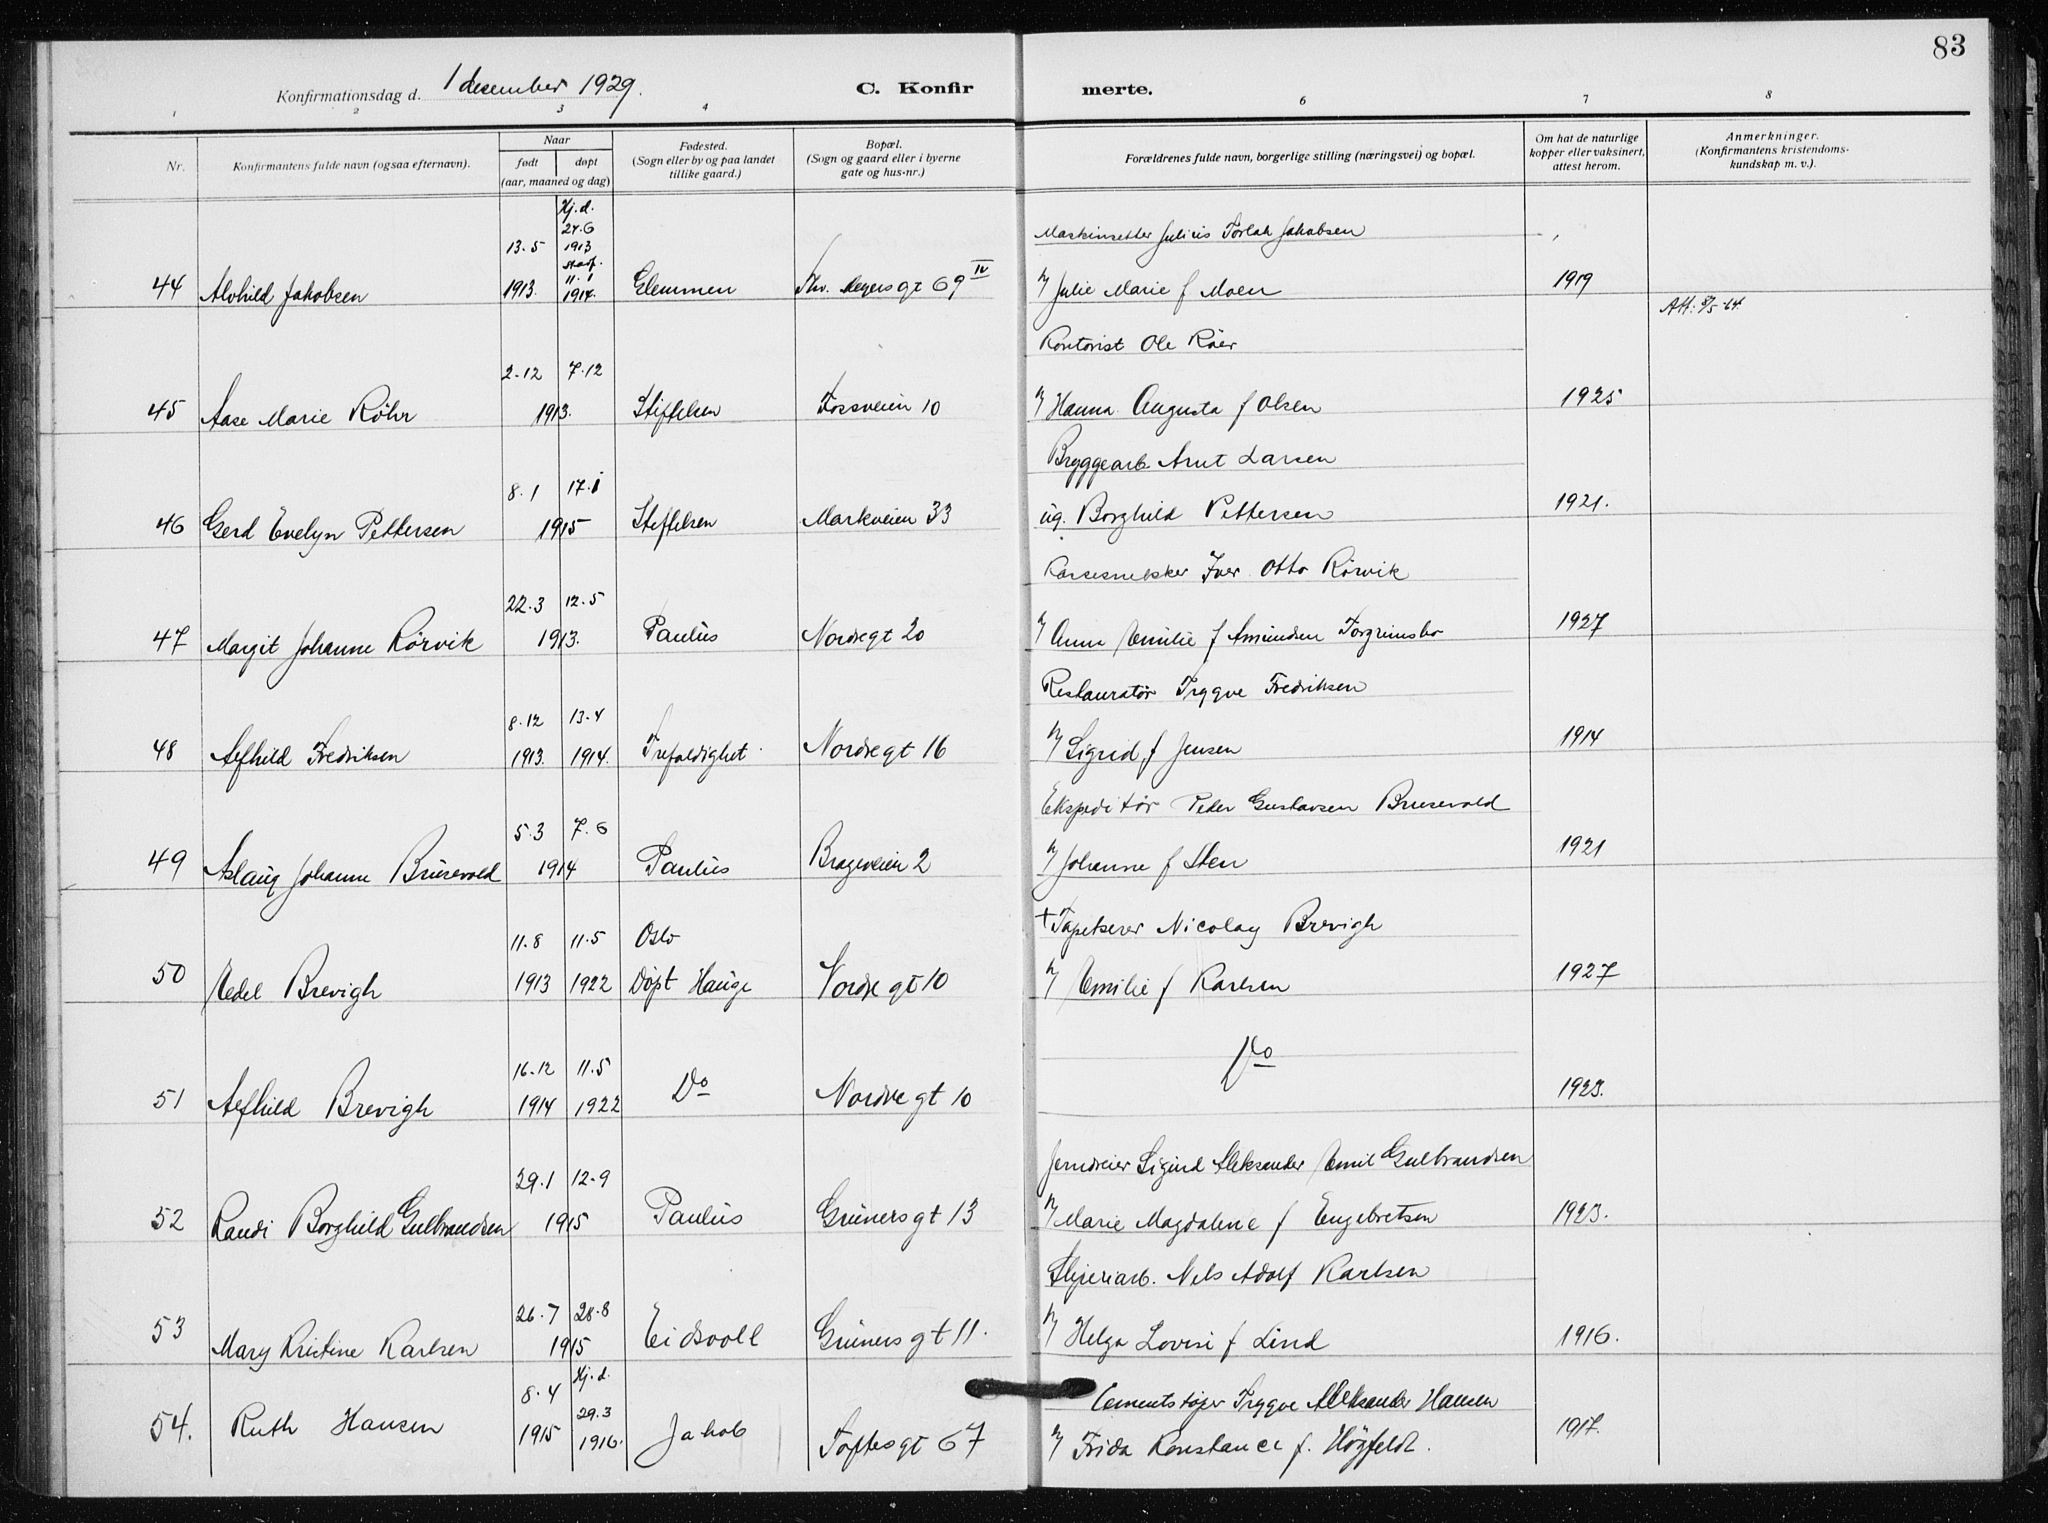 83
Konfirmationsdag d. 1 desember 1929.
C. Konfirmerte.
1 2 3 4 6 7 8
Nr.
Konfirmantens fulde navn (ogsaa efternavn).
Naar
født døpt
(aar, maaned og dag)
Fødested.
(Sogn eller by og paa landet
tillike gaard.)
Bopæl.
(Sogn og gaard eller i byerne
gate og hus-nr.)
Forældrenes fulde navn, borgerlige stilling (næringsvei) og bopæl.
Om hat de naturlige
kopper eller vaksinert,
attest herom.
Anmerkninger.
(Konfirmantens kristendoms-
kundskap m. v.)
Hj. d.
24.6
13.5 1913 Maskinsetter Julius Torlak Jakobsen
stadf.
11.1
44 Alvhild Jakobsen 1913. 1914. Glemmen Thv. Meyersgt 69 IV Julie Marie f Moen 1919
Att: 8/5-64.
Kontorist Ole Röer
2-12 7.12
45 Aase Marie Röhr 1913. Stiftelsen Fossveien 10 Hanna Augusta f Olsen 1925
Bryggearb Arnt Larsen
8.1 17.1
46 Gerd Evelyn Pettersen 1915 Stiftelsen Markveien 33 ug. Borghild Pettersen 1921.
Iver Otto Rörvik
22.3 12.5
47 Margit Johanne Rörvik 1913. Paulus Nordregt 20 Anna Emilie f Amundsen Torgrimsbo 1927
Restauratör Trygve Fredriksen
8.12 13.4
48 Alfhild Fredriksen 1913. 1914. Trefoldighet Nordregt 16 Sigrid f Jensen 1914
Ekspeditör Peder Gustavsen Brusevold
5.3 7.6
49 Aslaug Johanne Brusevold 1914 Paulus Brageveien 2 Johanne f Sten 1921
+Tapetserer Nicolay Brevigh
11.8 11.5 Oslo
50 Vedel Brevigh 1913 1922 Döpt Hauge Nordre gt 10 Emilie f Karlsen 1927
Do
16-12 11.5
51 Alfhild Brevigh 1914 1922 Do Nordregt 10 1923.
Jerndreier Sigurd Aleksander Emil Gulbrandsen
29.1 12-9
52 Randi Borghild Gulbrandsen 1915 Paulus Grünersgt 13 Marie Magdalene f Engebretsen 1923.
Sliperiarb. Nils Adolf Karlsen
26.7 28.8
53 Mary Kristine Karlsen 1915 Eidsvoll Grünersgt 11. Helga Lovise f Lind 1916.
Hj. d.
8.4 Cementstöper Trygve Aleksander Hansen
29.3
54. Ruth Hansen 1915 1916. Jakob Toftesgt 67 Frida Konstance f. Högfeldt. 1917.